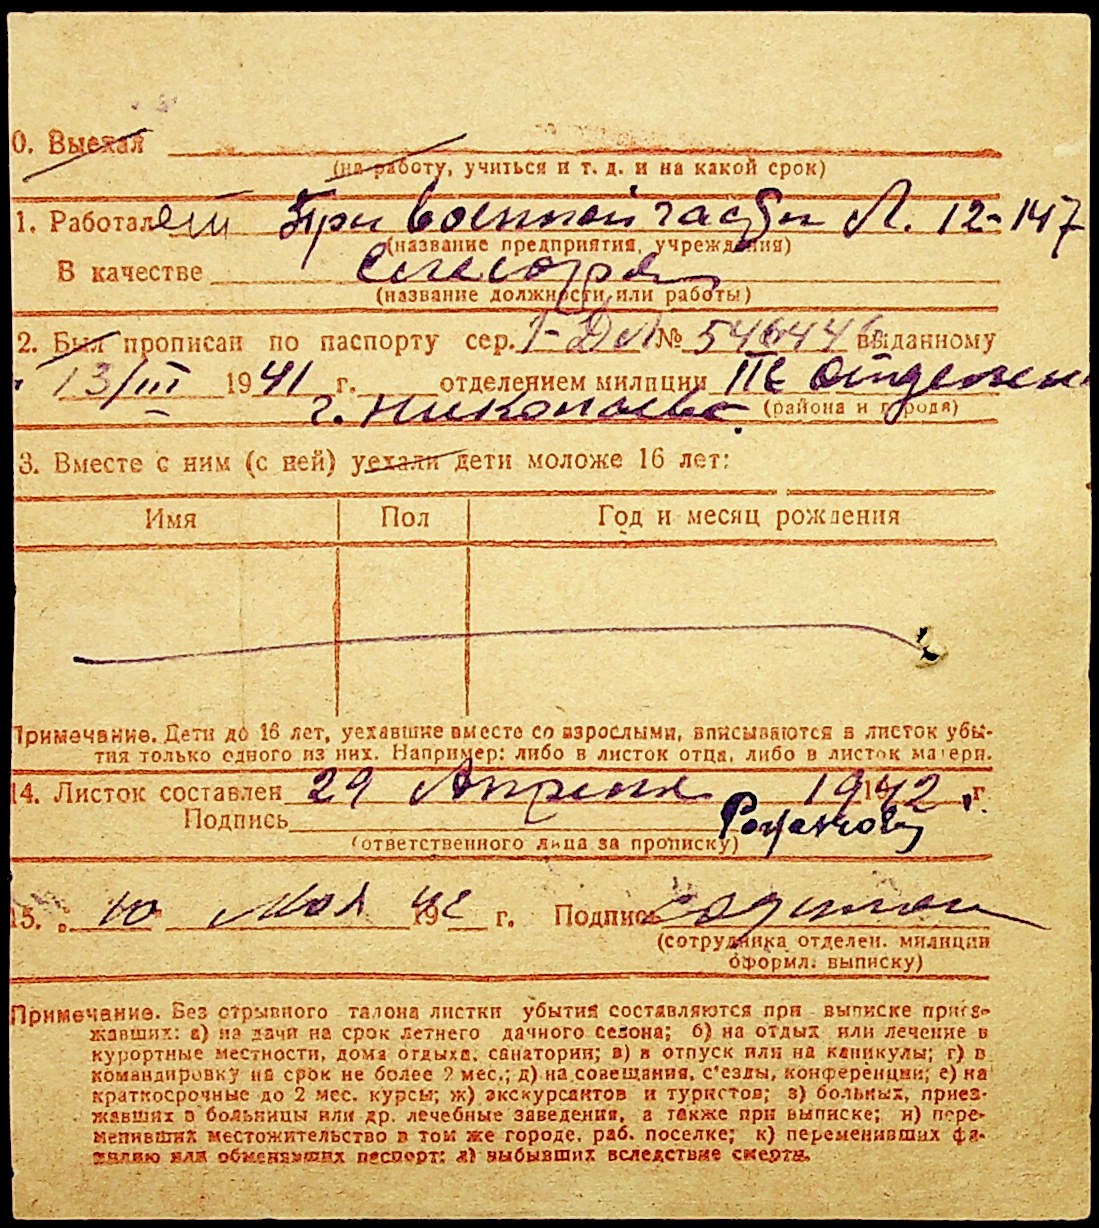 0. Выехал
(на работу, учиться и т. д. и на какой срок)
1. Работает При военной части Л. 12-147
(название предприятия, учреждения)
В качестве слесаря
(название должности или работы)
2. Был прописан по паспорту сер. 1-ДЛ № 546446 выданному
13/III 1941 г. отделением милиции IIе отделен
г. Николаева (района и города)
3. Вместе с ним (с ней) уехали дети моложе 16 лет:
Имя Пол Год и месяц рождения
Примечание. Дети до 16 лет, уехавшие вместе со взрослыми, вписываются в листок убы-
тия только одного из них. Например: либо в листок отца, либо в листок матери.
14. Листок составлен 29 Апреля 1942 г.
Подпись
(ответственного лица за прописку)
15. 10 мая 1942 г. Подпись
(сотрудника отделен. милиции
оформл. выписку)
Примечание. Без отрывного талона листки убытия составляются при выписке приез-
жавших: а) на дачи на срок летнего дачного сезона; б) на отдых или лечение в
курортные местности, дома отдыха, санатории; в) в отпуск или на каникулы; г) в
командировку на срок не более 2 мес.; д) на совещания, с'езды, конференции; е) на
краткосрочные до 2 мес. курсы; ж) экскурсантов и туристов; з) больных, приез-
жавших в больницы или др. лечебные заведения, а также при выписке; и) пере-
менивших местожительство в том же городе, раб. поселке; к) переменивших фа-
милию или обменявших паспорт; л) выбывших вследствие смерти.